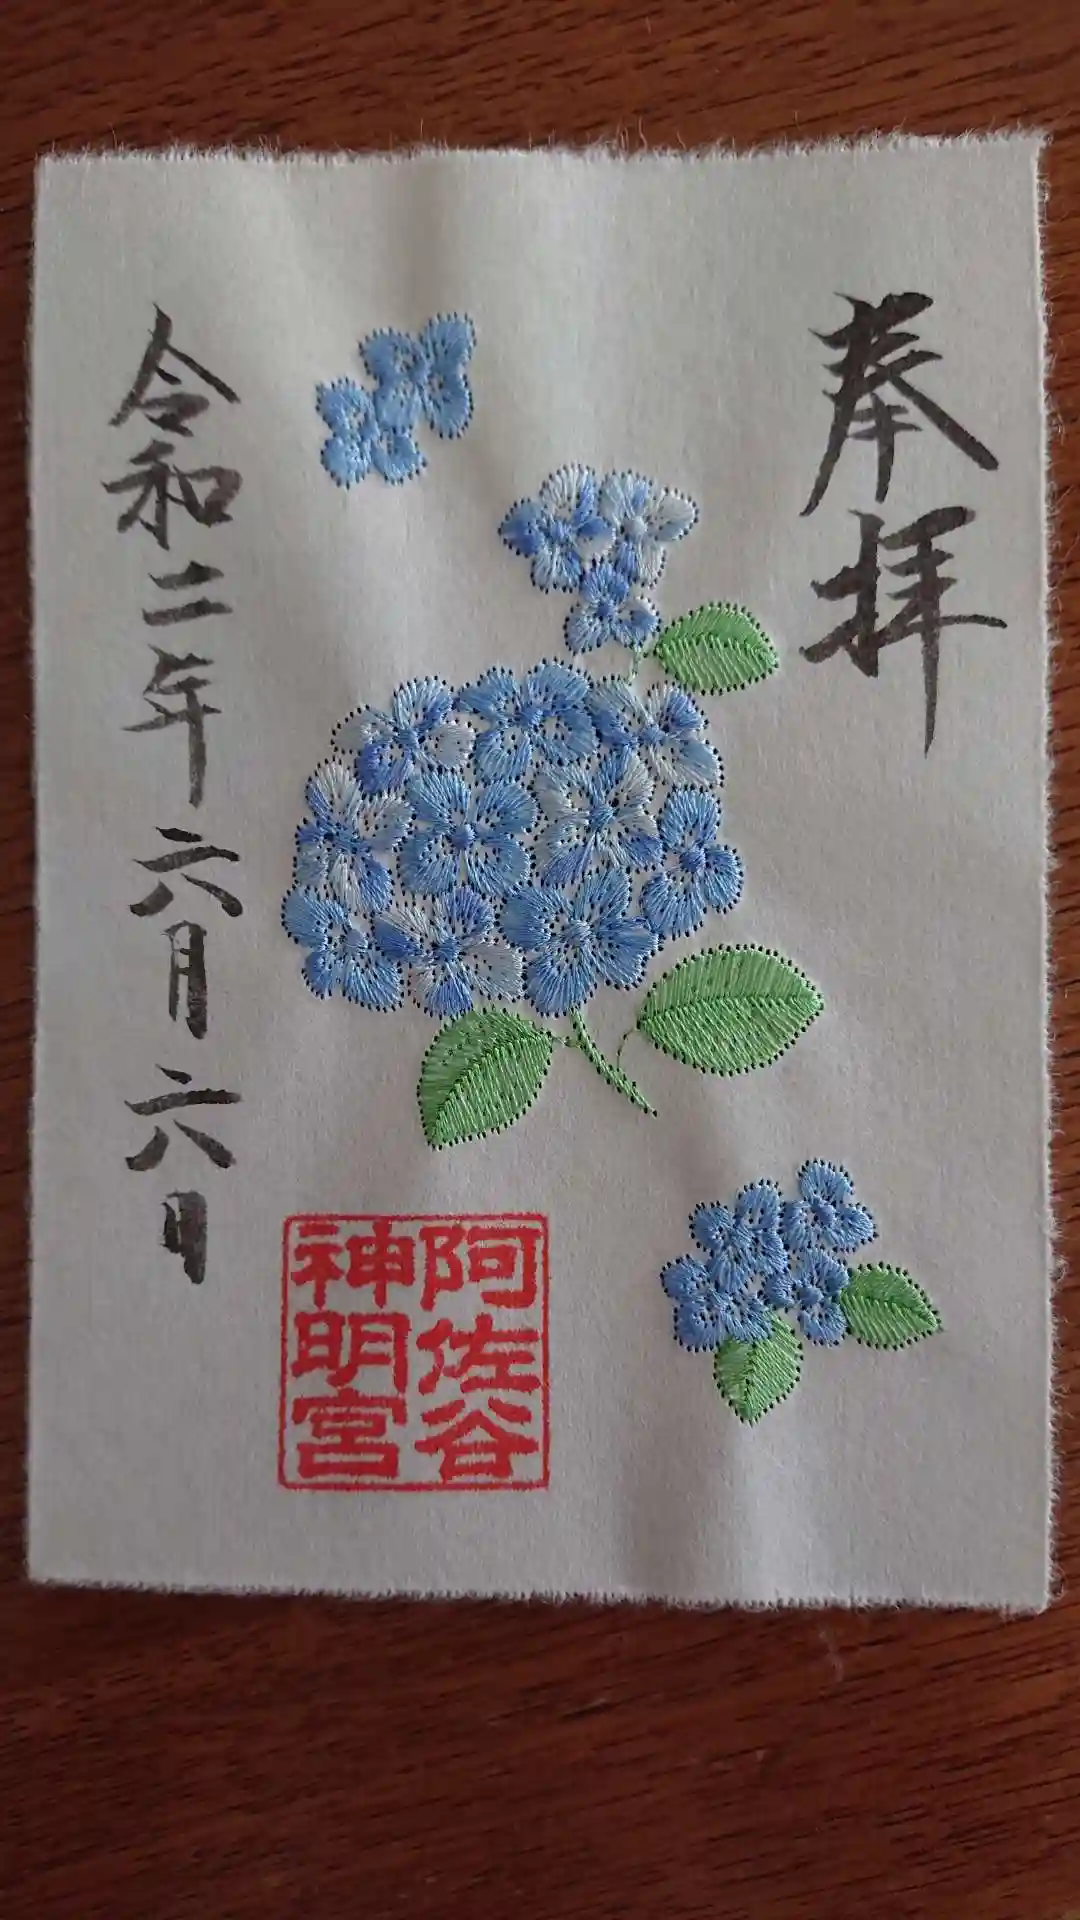 奉拝
阿佐谷
神明宮
令和二年六月六日